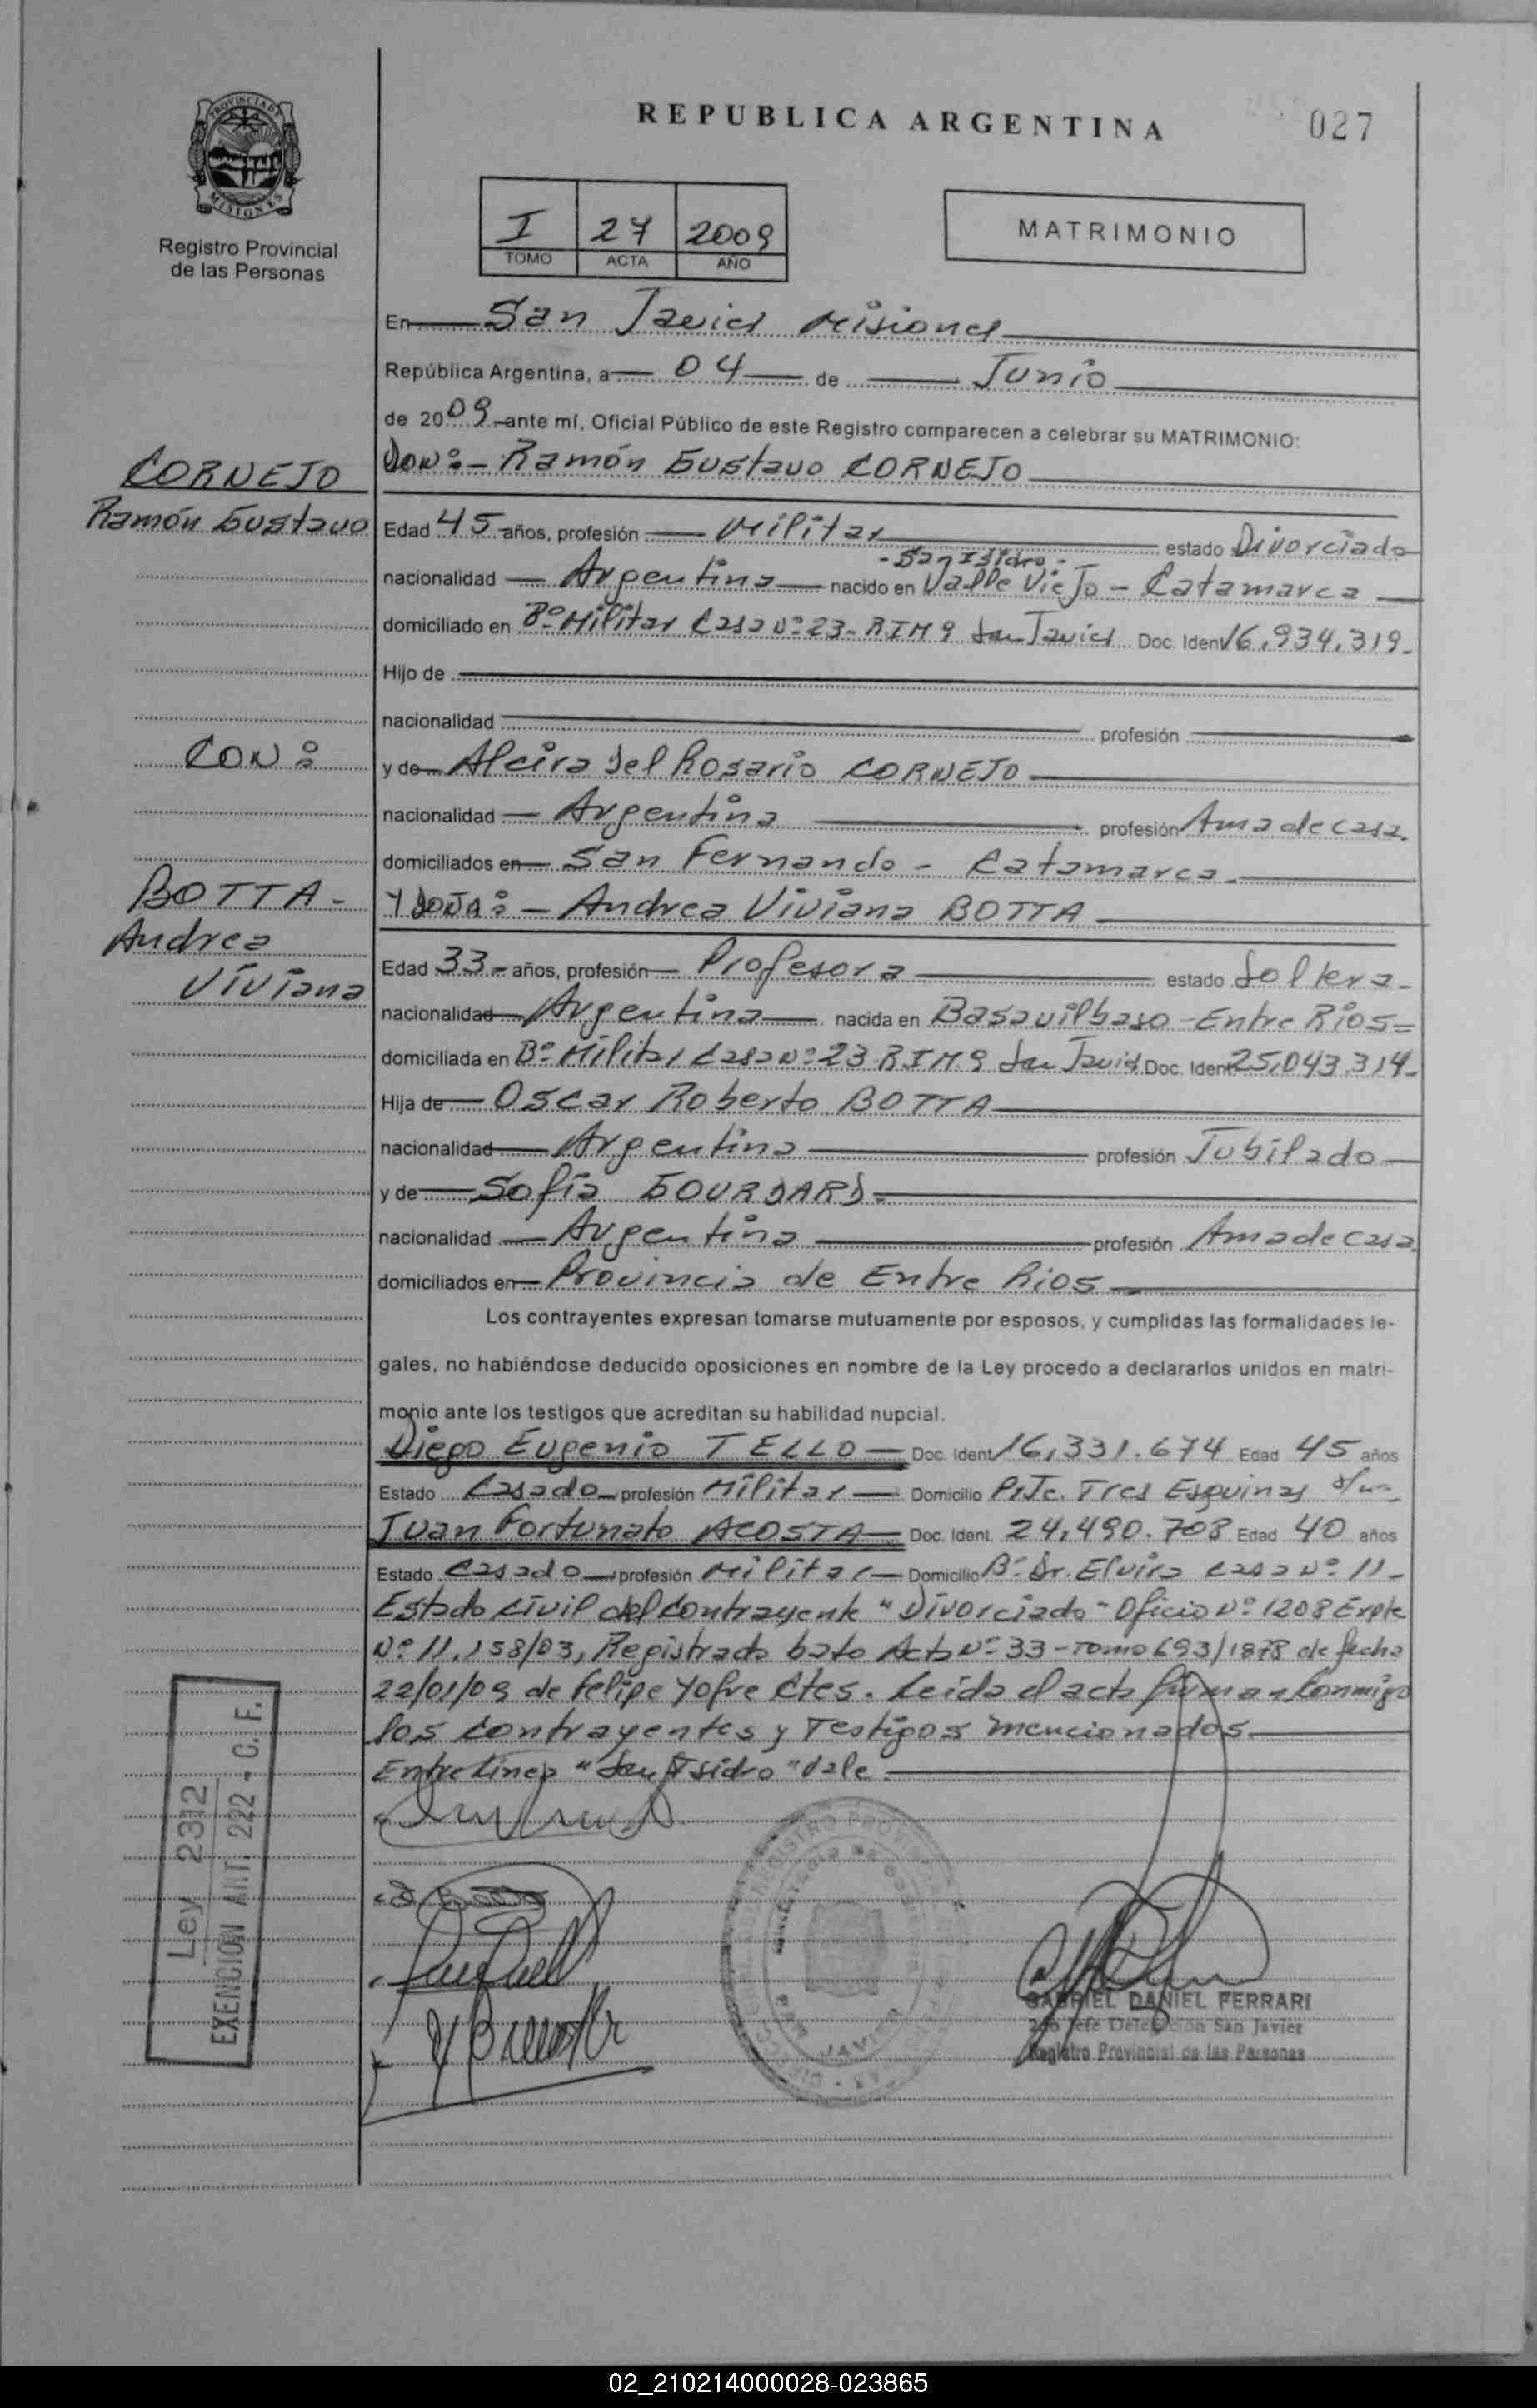 REPUBLICA ARGENTINA
027
PROVINCIA DE
MISIONES
Registro Provincial
de las Personas
I 27 2009
TOMO ACTA AÑO
MATRIMONIO
En San Javier Misiones
República Argentina, a 04 de Junio
de 2009 ante mí, Oficial Público de este Registro comparecen a celebrar su MATRIMONIO:
CORNEJO
Ramón Gustavo
DON:- Ramón Gustavo CORNEJO
Edad 45 años, profesión Militar estado Divorciado
- San Isidro -
nacionalidad Argentina nacido en Valle Viejo - Catamarca
domiciliado en Bº Militar Casa Nº 23 - RIM 9 San Javier Doc. Ident 16.934.319-
Hijo de
nacionalidad profesión
CON:
y de Alcira del Rosario CORNEJO
nacionalidad Argentina profesión Ama de casa.
domiciliados en San Fernando - Catamarca.
BOTTA-
Andrea
Viviana
Y DOÑA:- Andrea Viviana BOTTA
Edad 33- años, profesión Profesora estado Soltera-
nacionalidad Argentina nacida en Basavilbaso - Entre Rios=
domiciliada en Bº Militar Casa Nº 23 RIM.9 San Javier Doc. Ident 25.043.314-
Hija de Oscar Roberto BOTTA
nacionalidad Argentina profesión Jubilado
y de Sofia GOURDARD-
nacionalidad Argentina profesión Ama de casa.
domiciliados en Provincia de Entre Rios
Los contrayentes expresan tomarse mutuamente por esposos, y cumplidas las formalidades le-
gales, no habiéndose deducido oposiciones en nombre de la Ley procedo a declararlos unidos en matri-
monio ante los testigos que acreditan su habilidad nupcial.
Diego Eugenio TELLO Doc. Ident 16.331.674 Edad 45 años
Estado Casado profesión Militar Domicilio Pje. Tres Esquinas
Juan Fortunato ACOSTA Doc. Ident. 24.490.708 Edad 40 años
Estado Casado profesión Militar Domicilio Bº Dr. Elvira casa Nº 11-
Estado civil del contrayente "Divorciado" Oficio Nº 1208 Expte
Nº 11.158/03, Registrado bajo Acta Nº 33 - Tomo 693/1878 de fecha
22/01/09 de Felipe Yofre Ctes. Leida el acta firman conmigo
los contrayentes y Testigos mencionados
Entre Linea "San Isidro" Vale.
Ley 2312
EXENCION ART. 222 - C. F.
GABRIEL DANIEL FERRARI
2do Jefe Delegación San Javier
Registro Provincial de las Personas
02_210214000028-023865